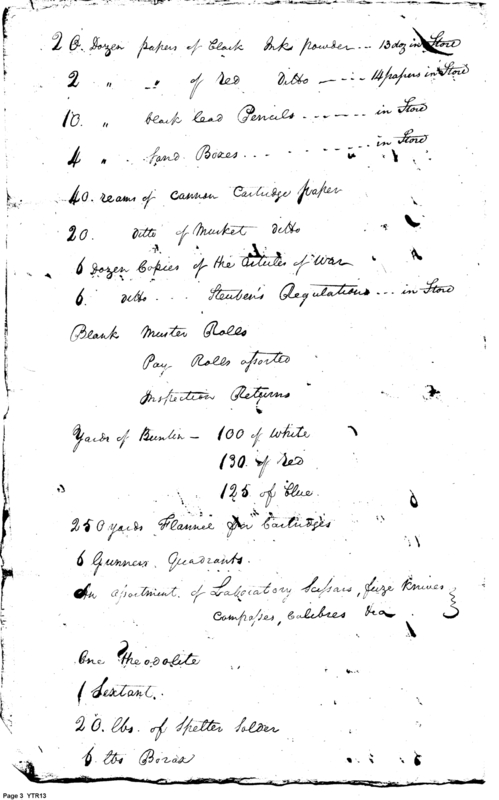 20. Dozen papers of Black Ink powder --- 13 doz in Store
2 " " of Red Ditto ---- 14 papers in Store
10. " black lead Pencils ------ in Store
4 " Sand Boxes ------ in Store
40. reams of Cannon Cartridge paper
20. ditto of Musket ditto
6 Dozen Copies of the Articles of War
6. ditto --- Steuben's Regulations --- in Store
Blank Muster Rolls
Pay Rolls assorted
Inspection Returns
Yards of Buntin - 100 of White
130 of Red
125 of blue.
250 yards Flannel for Cartridges
6 Gunners Quadrants.
An assortment of Laboratory Scissars, fuze Knives
Compasses, Calibres &ca
One Theodolite
1 Sextant.
20. lbs. of Spelter Solder
6 lbs Borax
Page 3 YTR13